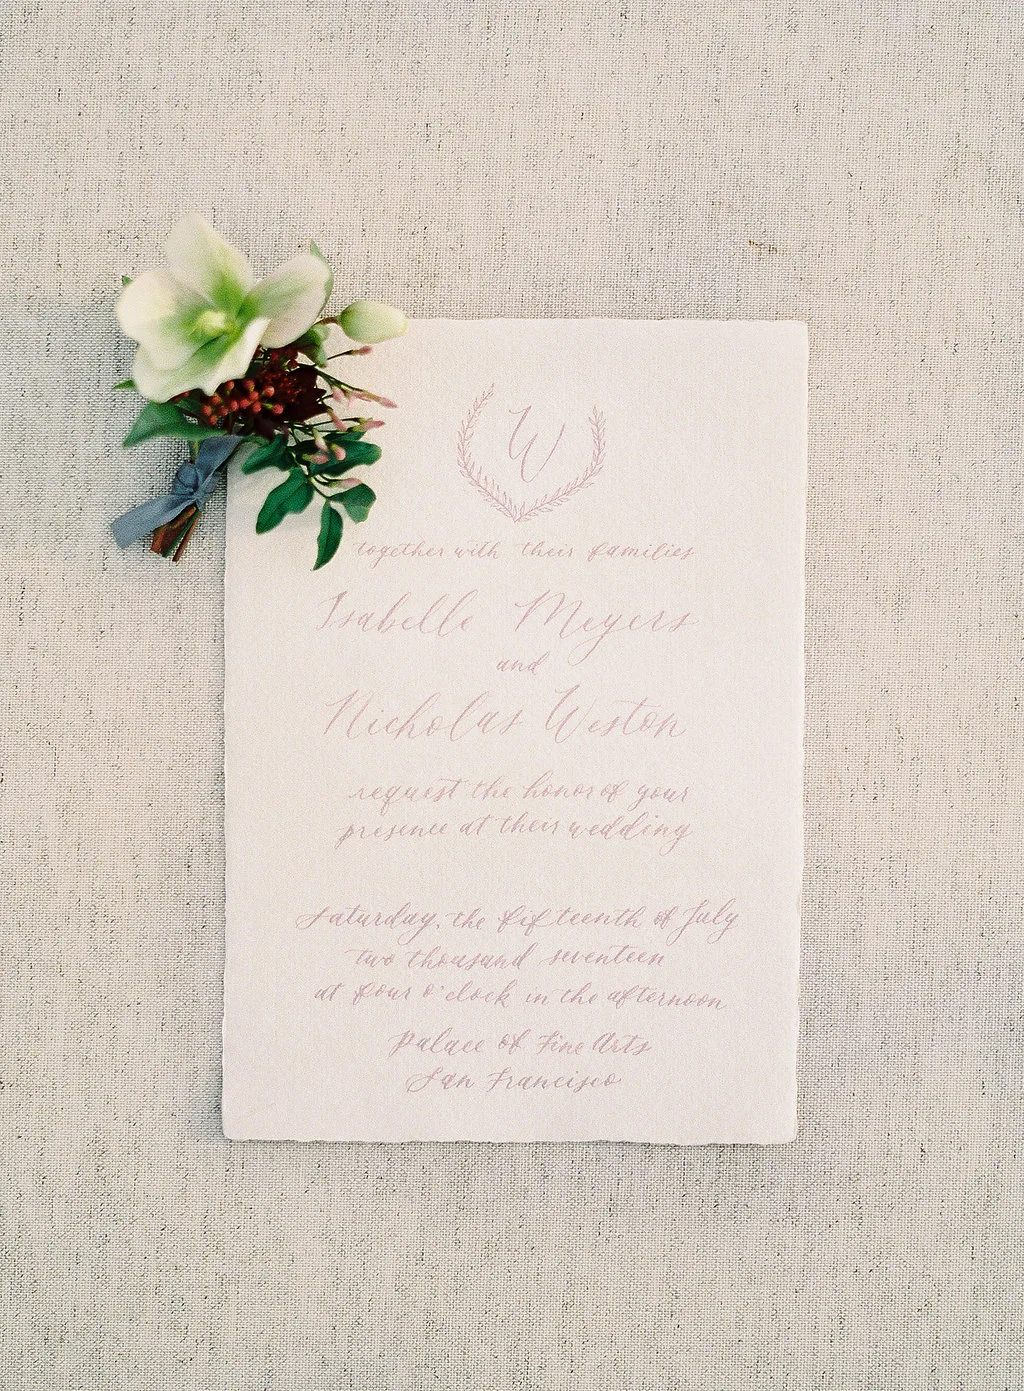 W
together with their families
Isabelle Meyers
and
Nicholas Weston
request the honor of your
presence at their wedding
Saturday, the fifteenth of July
two thousand seventeen
at four o'clock in the afternoon
Palace of Fine Arts
San Francisco